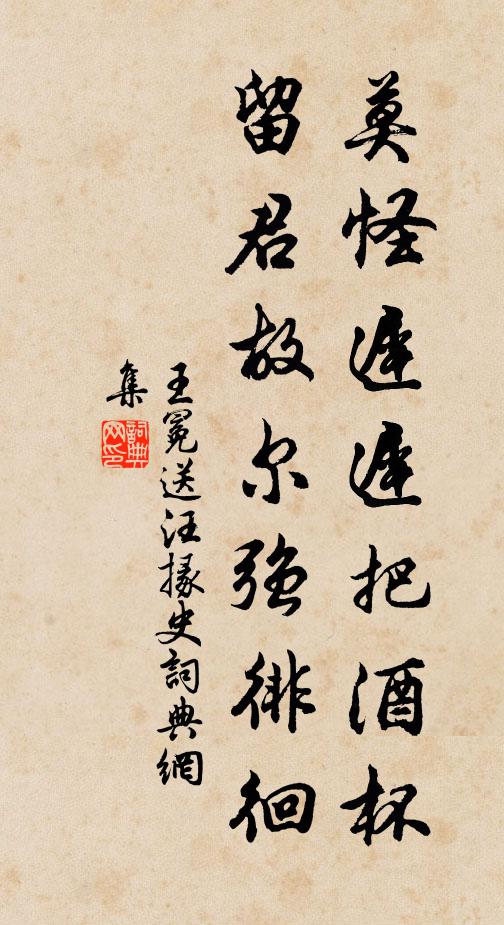 莫怪遲遲把酒杯
留君故尔強徘徊
王冕送汪掾史詞典網
集
詞典
网印